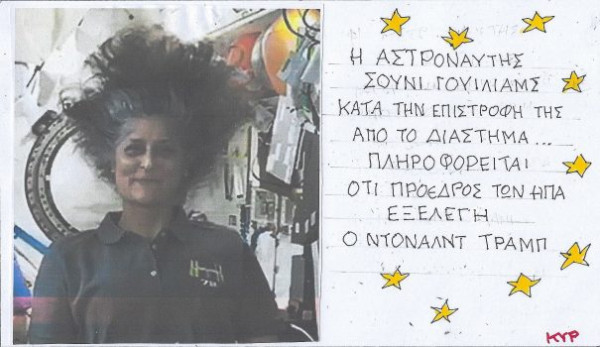 Η ΑΣΤΡΟΝΑΥΤΗΣ
ΣΟΥΝΙ ΓΟΥΙΛΙΑΜΣ
ΚΑΤΑ ΤΗΝ ΕΠΙΣΤΡΟΦΗ ΤΗΣ
ΑΠΟ ΤΟ ΔΙΑΣΤΗΜΑ...
ΠΛΗΡΟΦΟΡΕΙΤΑΙ
ΟΤΙ ΠΡΟΕΔΡΟΣ ΤΩΝ ΗΠΑ
ΕΞΕΛΕΓΗ
Ο ΝΤΟΝΑΛΝΤ ΤΡΑΜΠ
ΚΥΡ